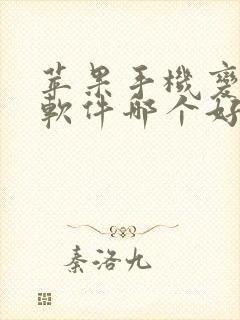 苹果手機變
軟件哪个好
秦洛九